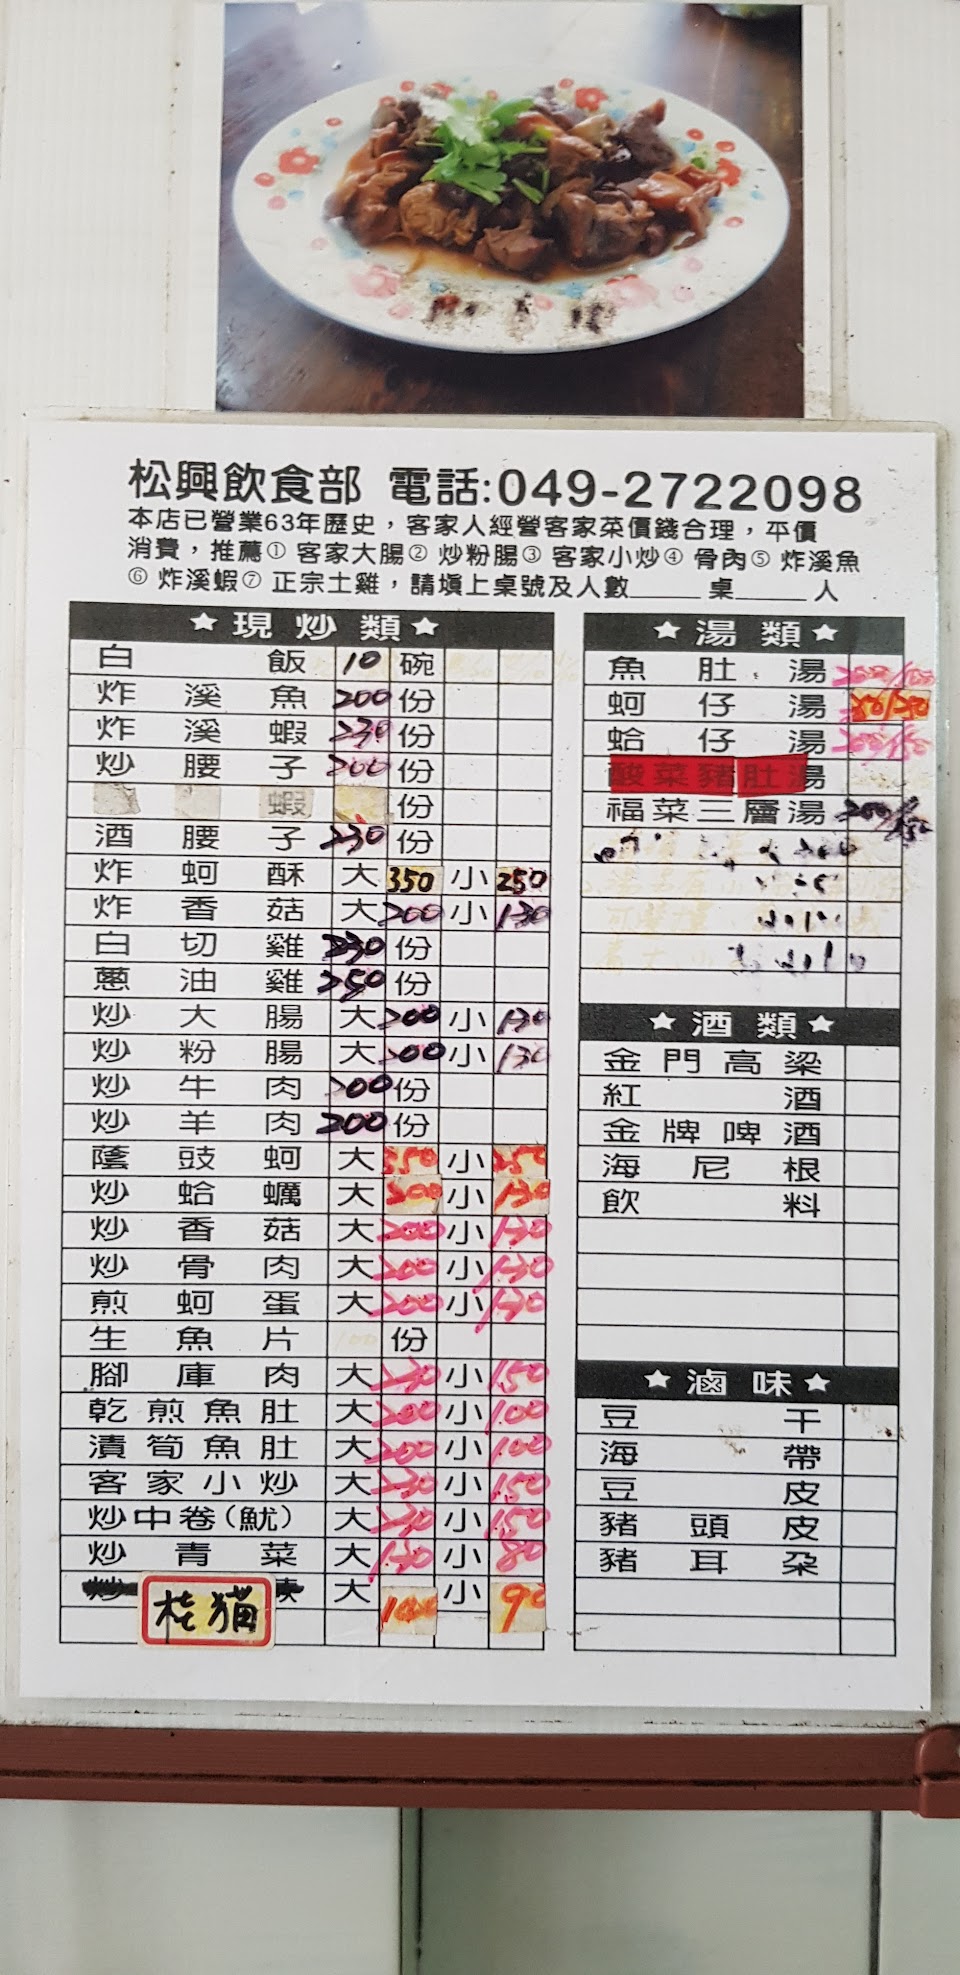 松興飲食部 電話:049-2722098
本店已營業63年歷史，客家人經營客家菜價錢合理，平價
消費，推薦① 客家大腸② 炒粉腸③ 客家小炒④ 骨肉⑤ 炸溪魚
⑥ 炸溪蝦⑦ 正宗土雞，請填上桌號及人數_____ 桌_____ 人
★現炒類★
白飯 10 碗
炸溪魚 200 份
炸溪蝦 230 份
炒腰子 200 份
蝦 份
酒腰子 230 份
炸蚵酥 大 350 小 250
炸香菇 大 200 小 130
白切雞 230 份
蔥油雞 250 份
炒大腸 大 200 小 130
炒粉腸 大 200 小 130
炒牛肉 200 份
炒羊肉 200 份
蔭豉蚵 大 350 小 250
炒蛤蠣 大 200 小 130
炒香菇 大 200 小 130
炒骨肉 大 200 小 130
煎蚵蛋 大 200 小
生魚片 100 份
腳庫肉 大 小 150
乾煎魚肚 大 200 小 100
漬筍魚肚 大 200 小 100
客家小炒 大 230 小 150
炒中卷(魷) 大 230 小 150
炒青菜 大 130 小 80
炒 大 140 小 90
★湯類★
魚肚湯
蚵仔湯
蛤仔湯
酸菜豬肚湯
福菜三層湯 200/150
★酒類★
金門高粱
紅酒
金牌啤酒
海尼根
飲料
★滷味★
豆干
海帶
豆皮
豬頭皮
豬耳朵